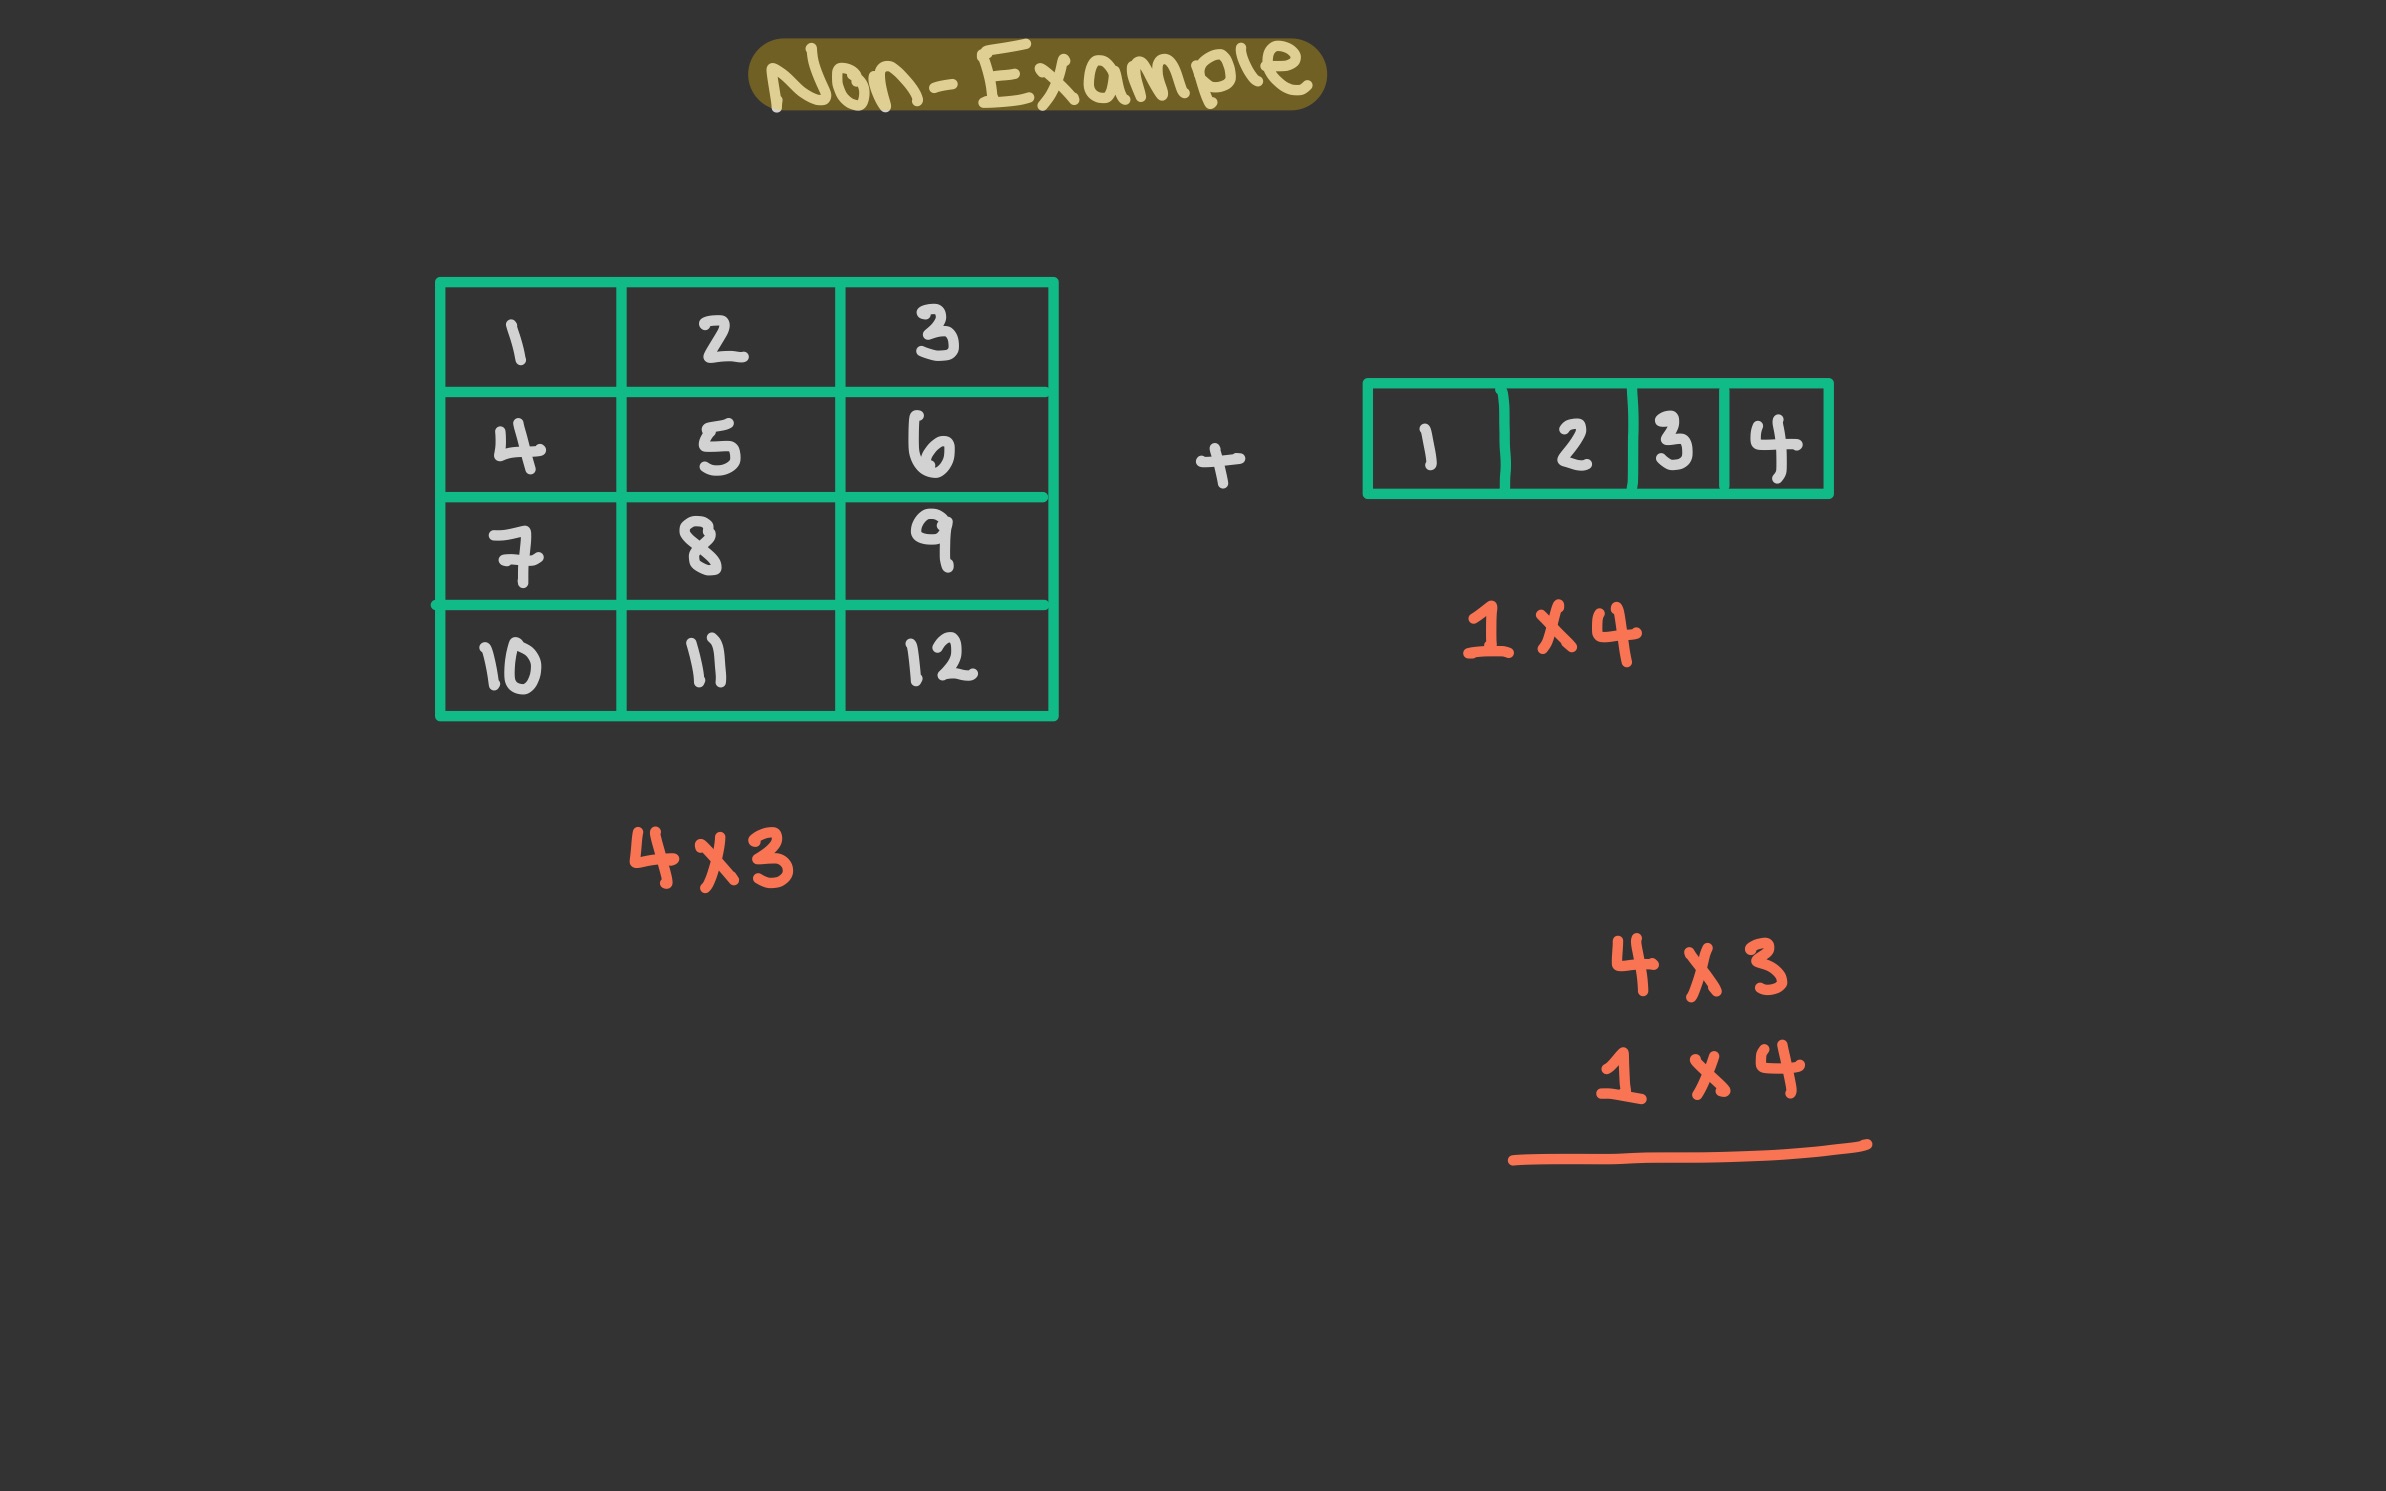 Non-Example
1 2 3
4 5 6
7 8 9
10 11 12
+
1 2 3 4
1 x 4
4 x 3
4 x 3
1 x 4